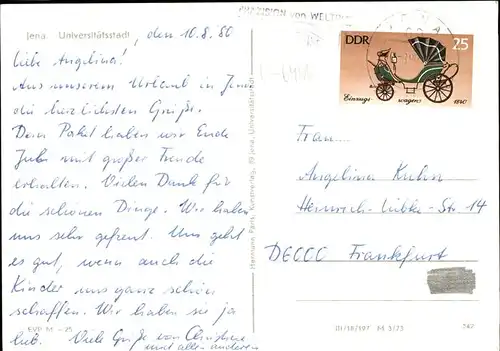 Jena Universitätsstadt, den 10.8.80
Liebe Angelina!
Aus unserem Urlaub in Jena
die herzlichsten Grüße.
Dein Paket haben wir Ende
Juli mit großer Freude
erhalten. Vielen Dank für
die schönen Dinge. Wir haben
uns sehr gefreut. Uns geht
es gut, wenn auch die
Kinder uns ganz schön
schaffen. Wir haben sie ja
lieb. Viele Grüße von Christine
und allen anderen
EVP M -,25
PRÄZISION von WELTRUF
DDR 25
Einzugs- wagen 1840
Frau
Angelina Kuhn
Heinrich-Lübke-Str. 14
D6000 Frankfurt
III/18/197 242